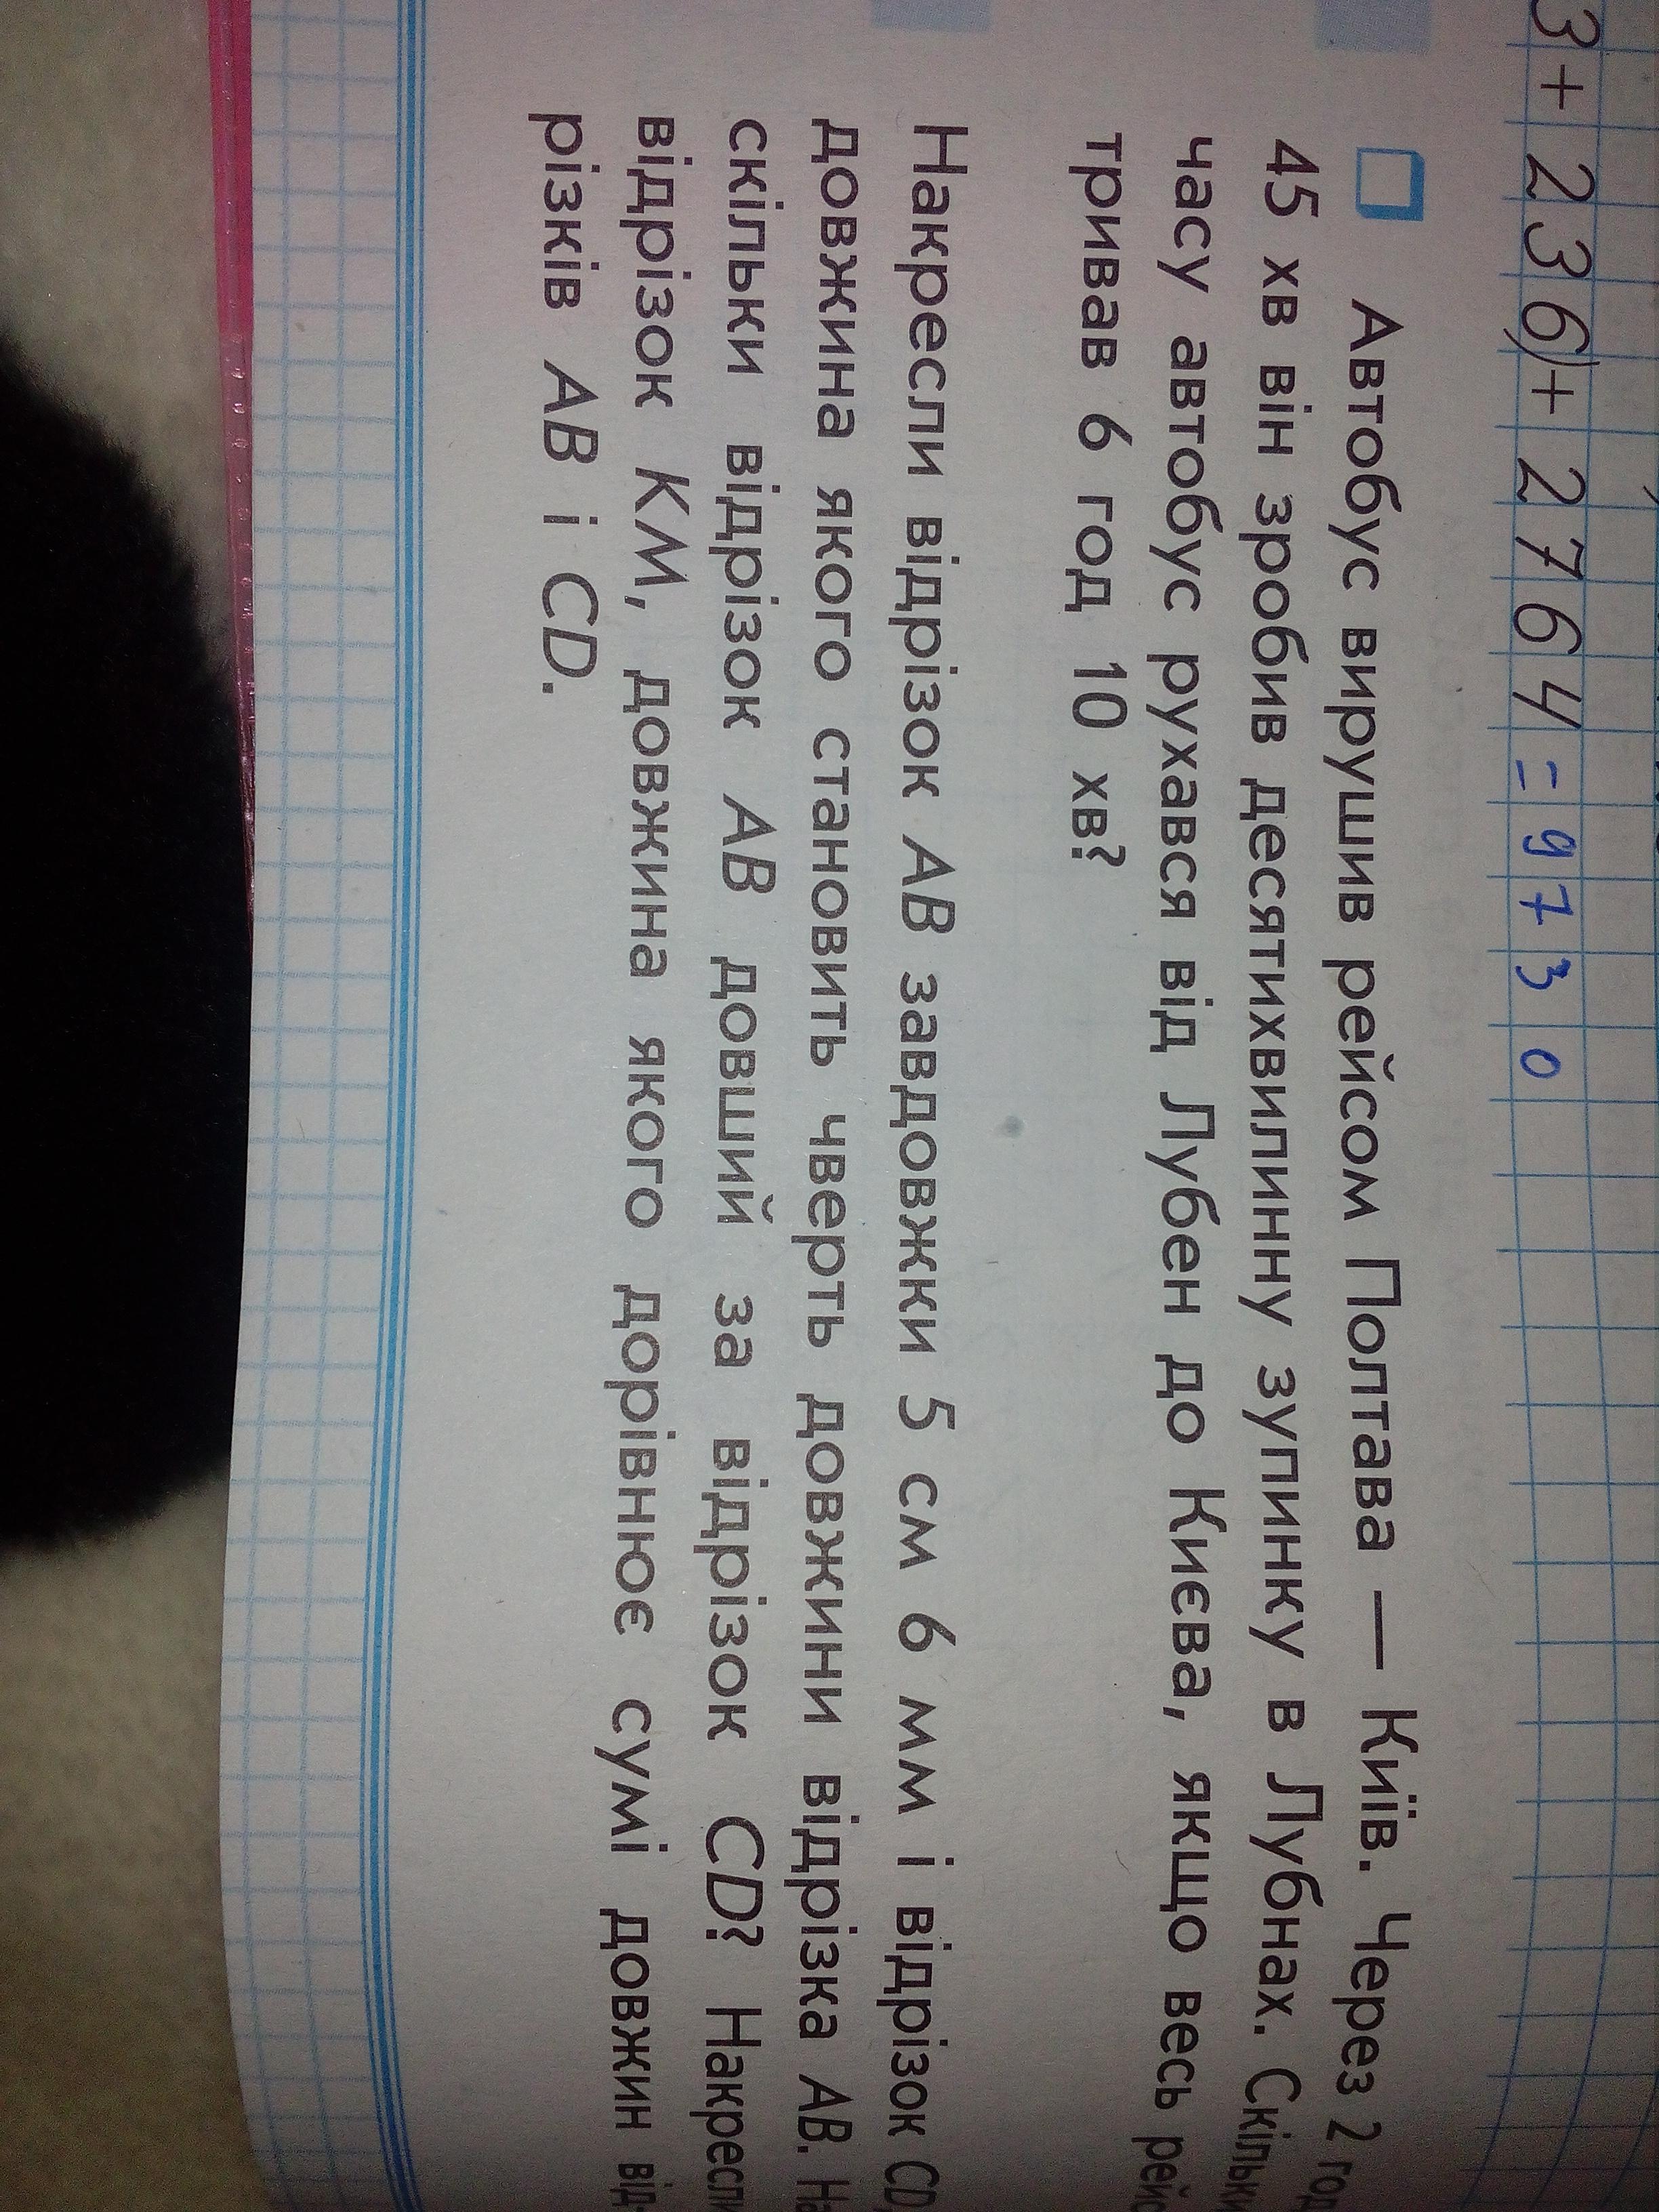 3+236)+2764=9730
Автобус вирушив рейсом Полтава — Київ. Через 2 год
45 хв він зробив десятихвилинну зупинку в Лубнах. Скільки
часу автобус рухався від Лубен до Києва, якщо весь рейс
тривав 6 год 10 хв?
Накресли відрізок AB завдовжки 5 см 6 мм і відрізок CD,
довжина якого становить чверть довжини відрізка AB. На
скільки відрізок AB довший за відрізок CD? Накресли
відрізок KM, довжина якого дорівнює сумі довжин від-
різків AB і CD.